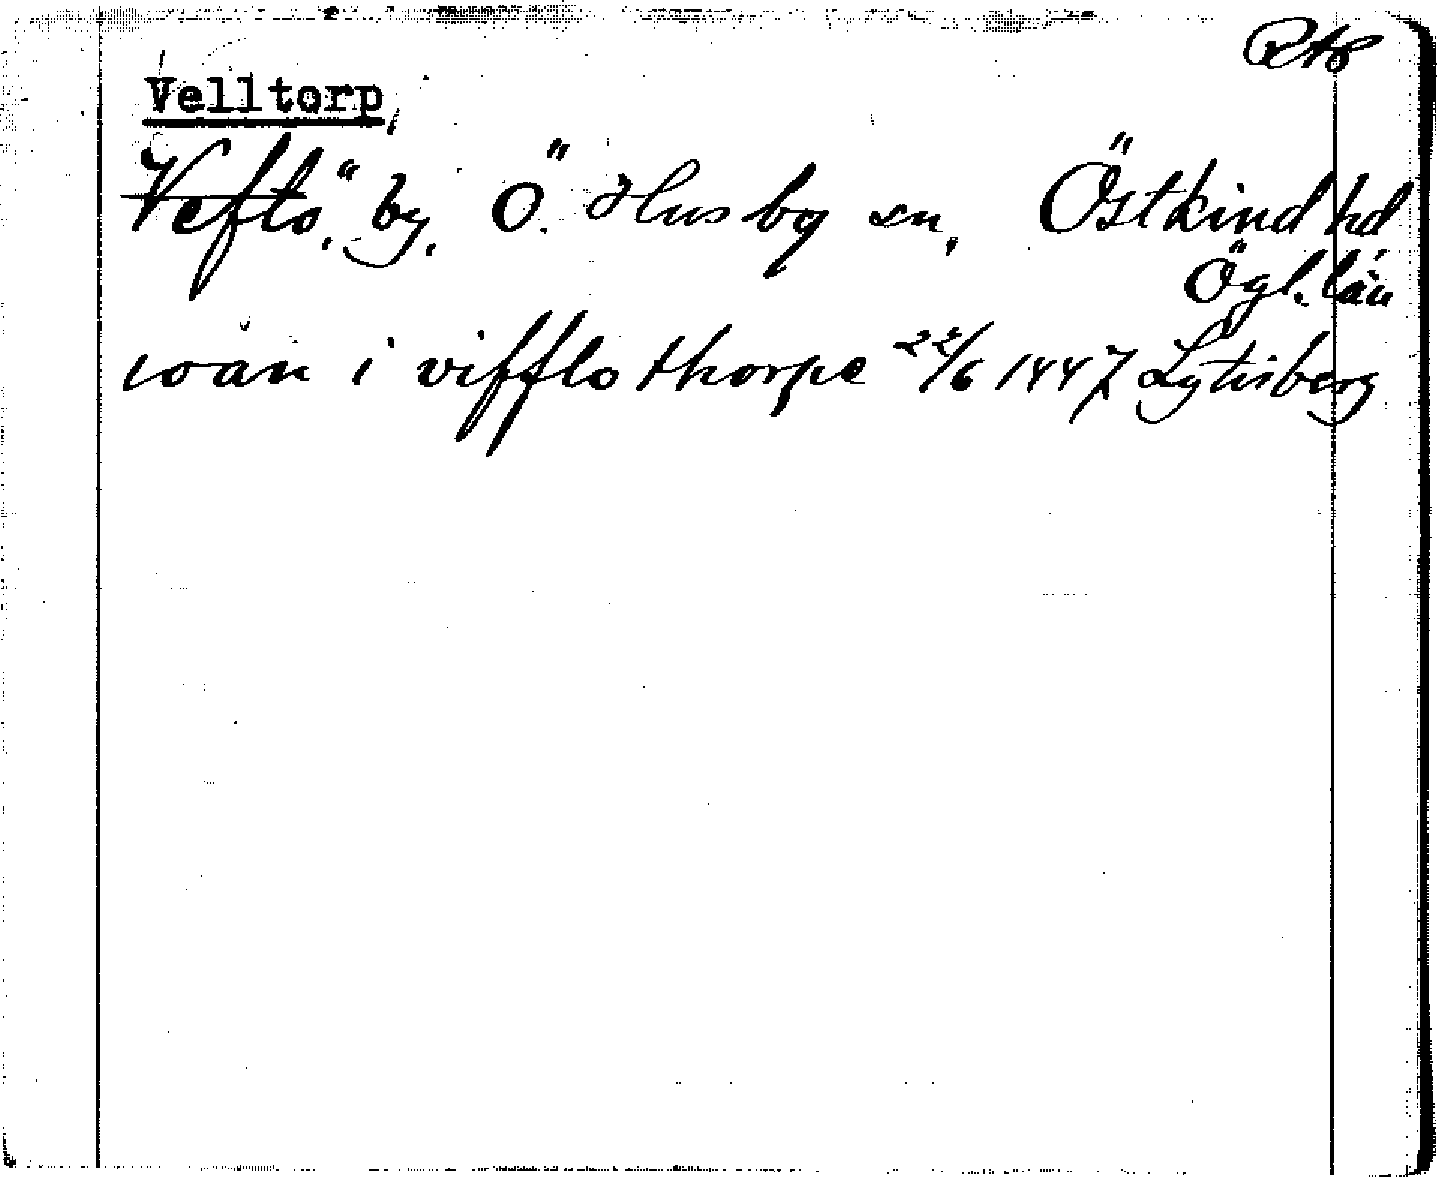 Velltorp,
Veftö, by, Ö. Husby sn, Östkind hd
Ögl. län
ioan i vifflo thorpe 22/6 1447 Lytisberg